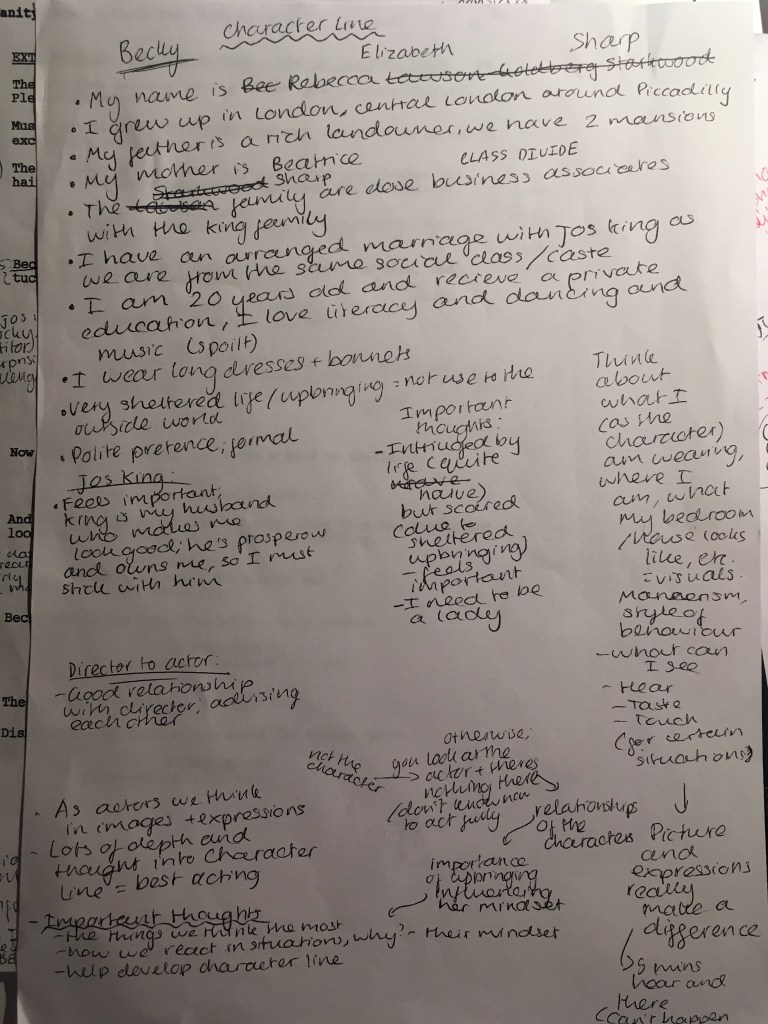 Character line
Becky
Elizabeth
Sharp
• My name is Bec Rebecca Lawson Goldberg Starkwood
• I grew up in London, central London around Piccadilly
• My father is a rich landowner, we have 2 mansions
• My mother is Beatrice
CLASS DIVIDE
Starkwood Sharp
• The Lawson family are close business associates
with the King family
• I have an arranged marriage with Jos King as
we are from the same social class/caste
• I am 20 years old and recieve a private
education, I love literacy and dancing and
music (spoilt)
• I wear long dresses + bonnets
• Very sheltered life/upbringing = not use to the
outside world
• Polite pretence; formal
Jos King:
• Feels important;
King is my husband
who makes me
look good; he's prosperous
and owns me, so I must
stick with him
Important
thoughts:
- Intrigued by
life (quite
naive)
but scared
(due to
sheltered
upbringing)
- feels
important
- I need to be
a lady
Think
about
what I
(as the
character)
am wearing,
where I
am, what
my bedroom
/house looks
like, etc.
= visuals.
Mannerism,
style of
behaviour
- what can
I see
- Hear
- Taste
- Touch
(for certain
situations)
Picture
and
expressions
really
make a
difference
5 mins
hear and
there
(can't happen
Director to actor:
- Good relationship
with director; advising
each other
not the
character
otherwise;
you look at the
actor + theres
nothing there
/don't know how
to act fully
relationships
of the
characters
importance
of upbringing
influencing
her mindset
• As actors we think
in images + expressions
- Lots of depth and
thought into character
line = best acting
- Important thoughts
- the things we think the most
- how we react in situations, why? - their mindset
- help develop character line
anity
EXT
The
Ple
Mus
exc
The
hai
Bec
tuc
Now
And
loo
Bec
The
Dis